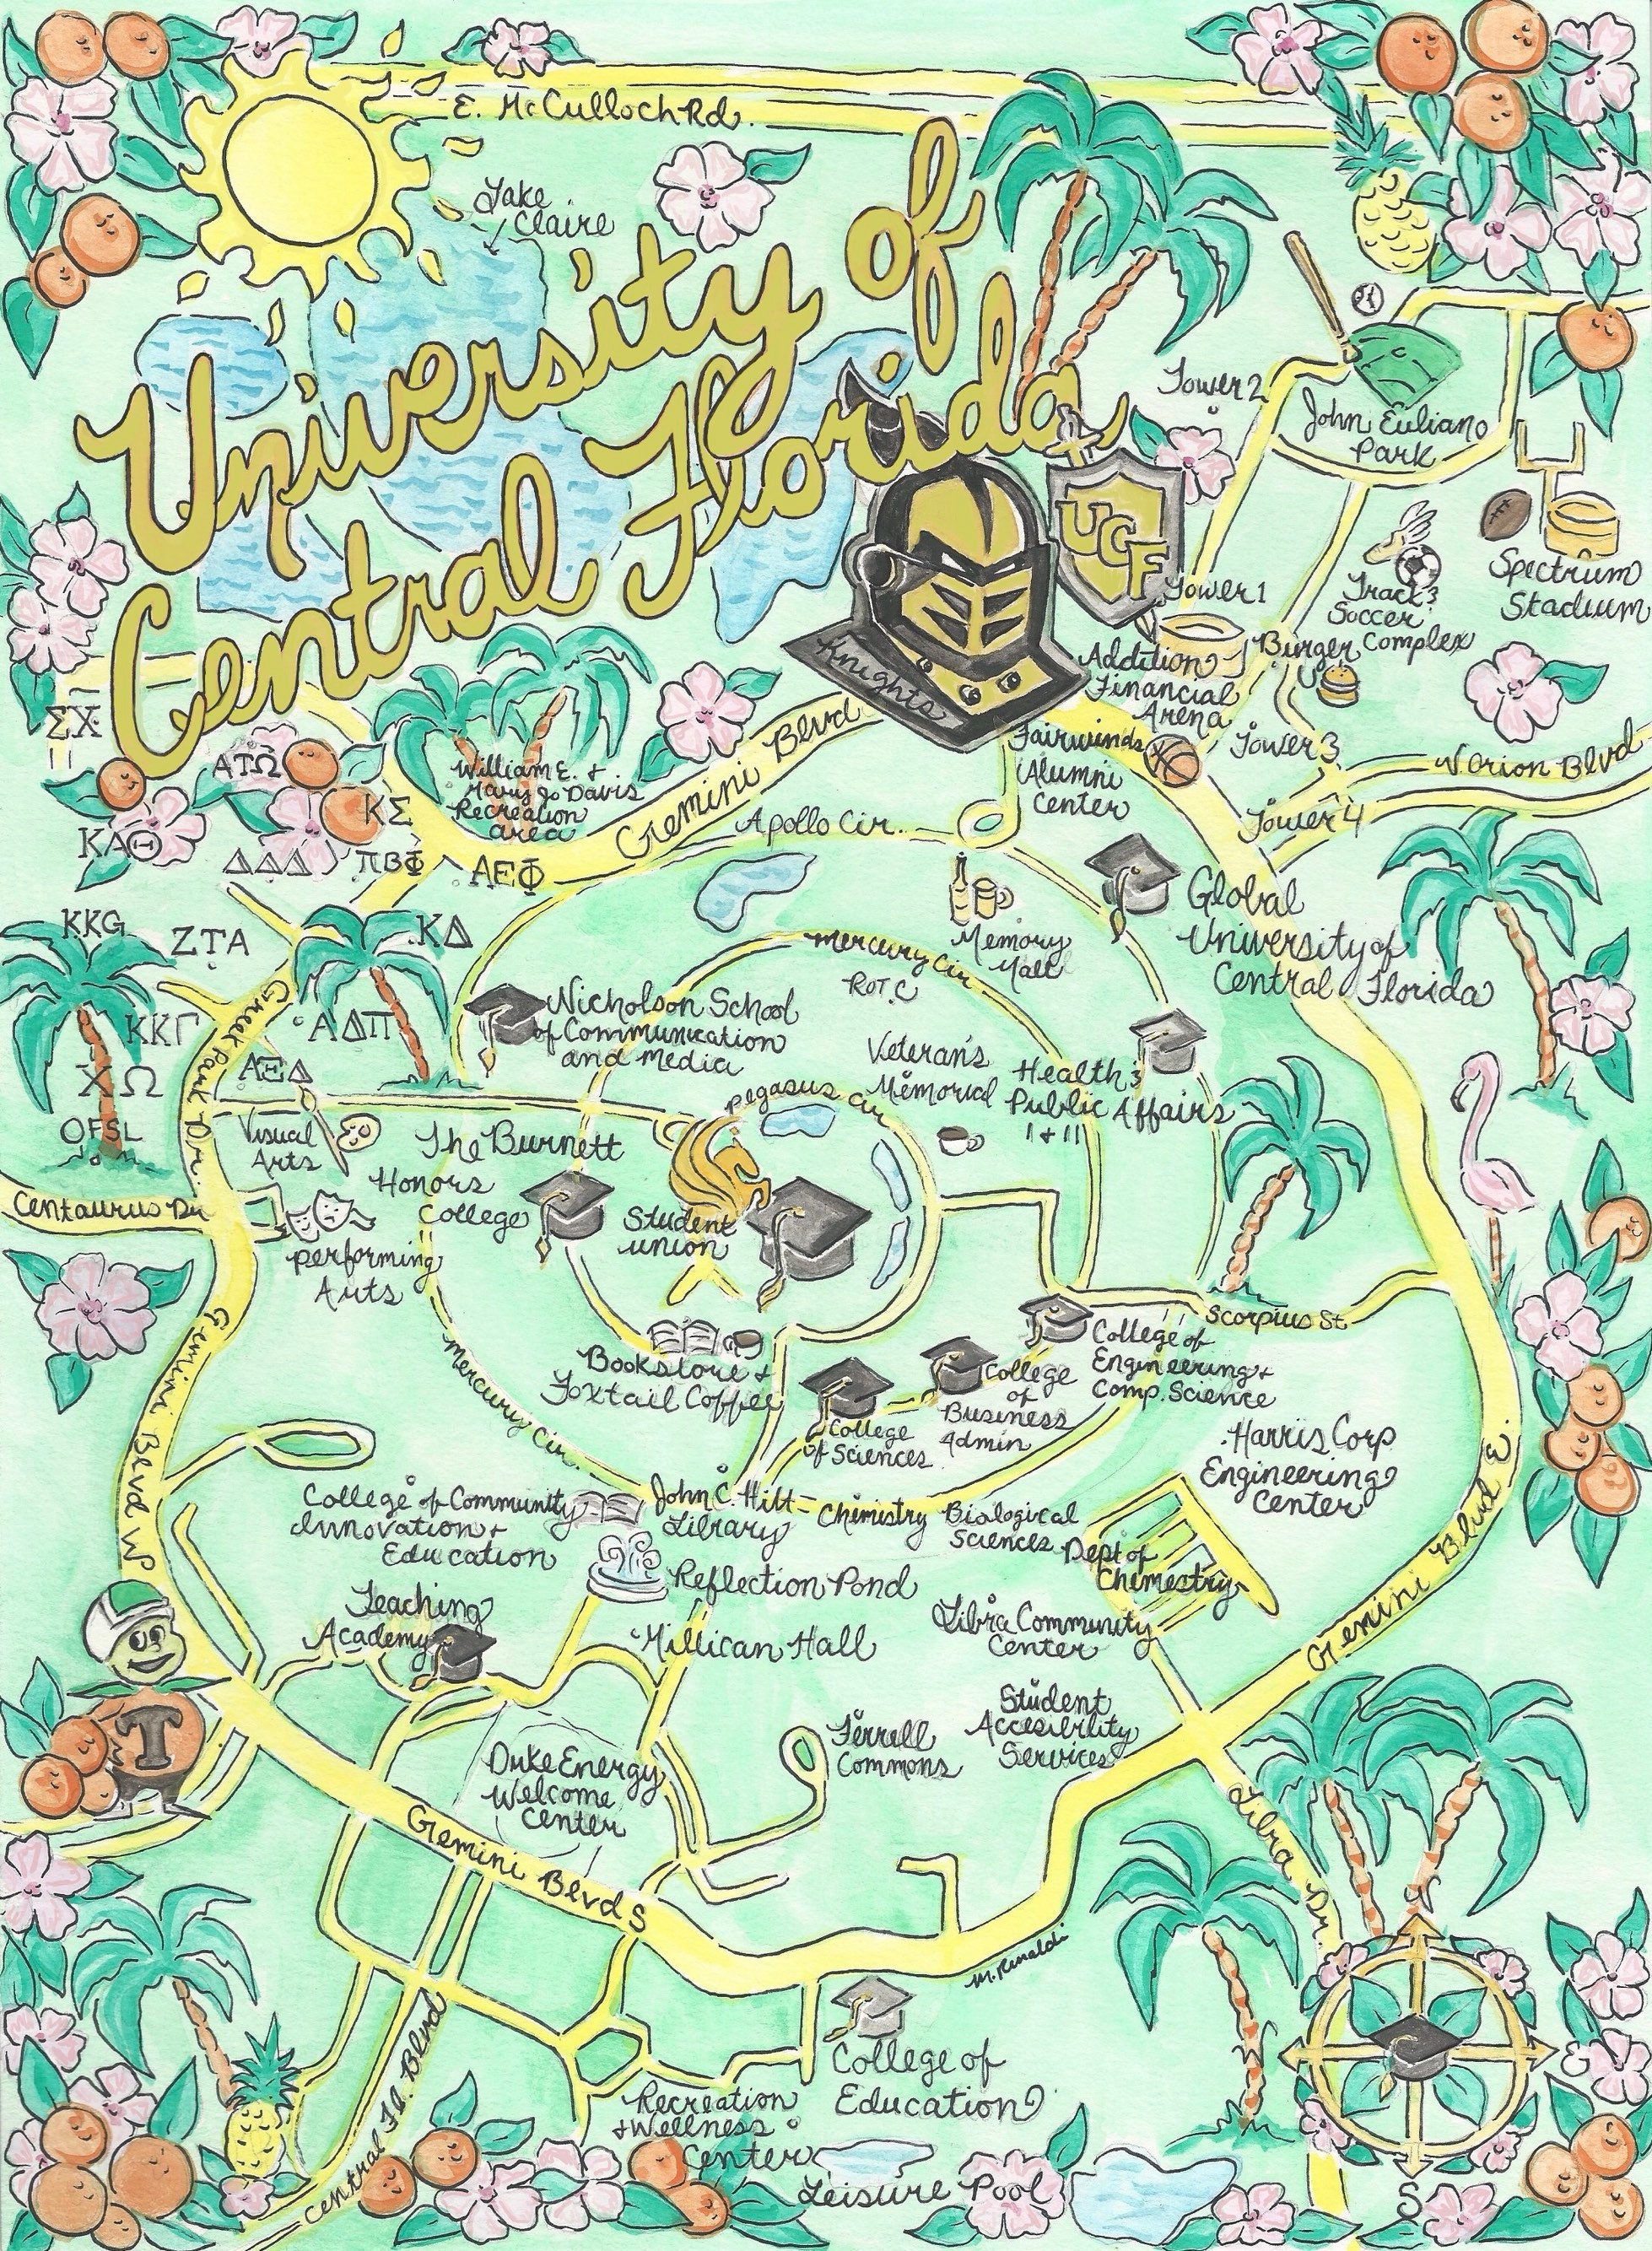 E. McCulloch Rd.
Lake
Claire
University of
Central Florida
Tower 2
John Euliano
Park
UCF
Knights
Tower 1
Track &
Soccer
Complex
Spectrum
Stadium
Burger
U
Addition
Financial
Arena
Fairwinds
Alumni
Center
Tower 3
N Orion Blvd
Tower 4
ΣΧ
ΑΤΩ
ΚΣ
ΚΑΘ
ΔΔΔ
ΠΒΦ
ΑΕΦ
William E. +
Mary Jo Davis
Recreation
area
Gemini Blvd
Apollo Cir.
KKG
ZTA
ΚΔ
Greek Park Dr.
ΚΚΓ
ΑΔΠ
ΧΩ
ΑΞΔ
OFSL
Memory
Mall
Global
University of
Central Florida
Mercury Cir
ROTC
Nicholson School
of Communication
and Media
Veteran's
Memorial
Health &
Public Affairs
I + II
Pegasus Cir
Visual
Arts
The Burnett
Honors
College
Centaurus Dr.
Performing
Arts
Student
Union
Scorpius St.
Bookstore +
Foxtail Coffee
College
of Sciences
College
of
Business
Admin
College of
Engineering +
Comp. Science
Harris Corp
Engineering
Center
Gemini Blvd W
Mercury Cir.
College of Community
Innovation +
Education
John C. Hitt
Library
Chemistry
Biological
Sciences
Dept of
Chemestry
Reflection Pond
Gemini Blvd E
Teaching
Academy
Millican Hall
Libra Community
Center
Student
Accesibility
Services
Ferrell
Commons
T
Duke Energy
Welcome
Center
Gemini Blvd S
Libra Dr.
M. Rinaldi
N
E
S
College of
Education
Central Fl. Blvd
Recreation
+ Wellness
Center
Leisure Pool